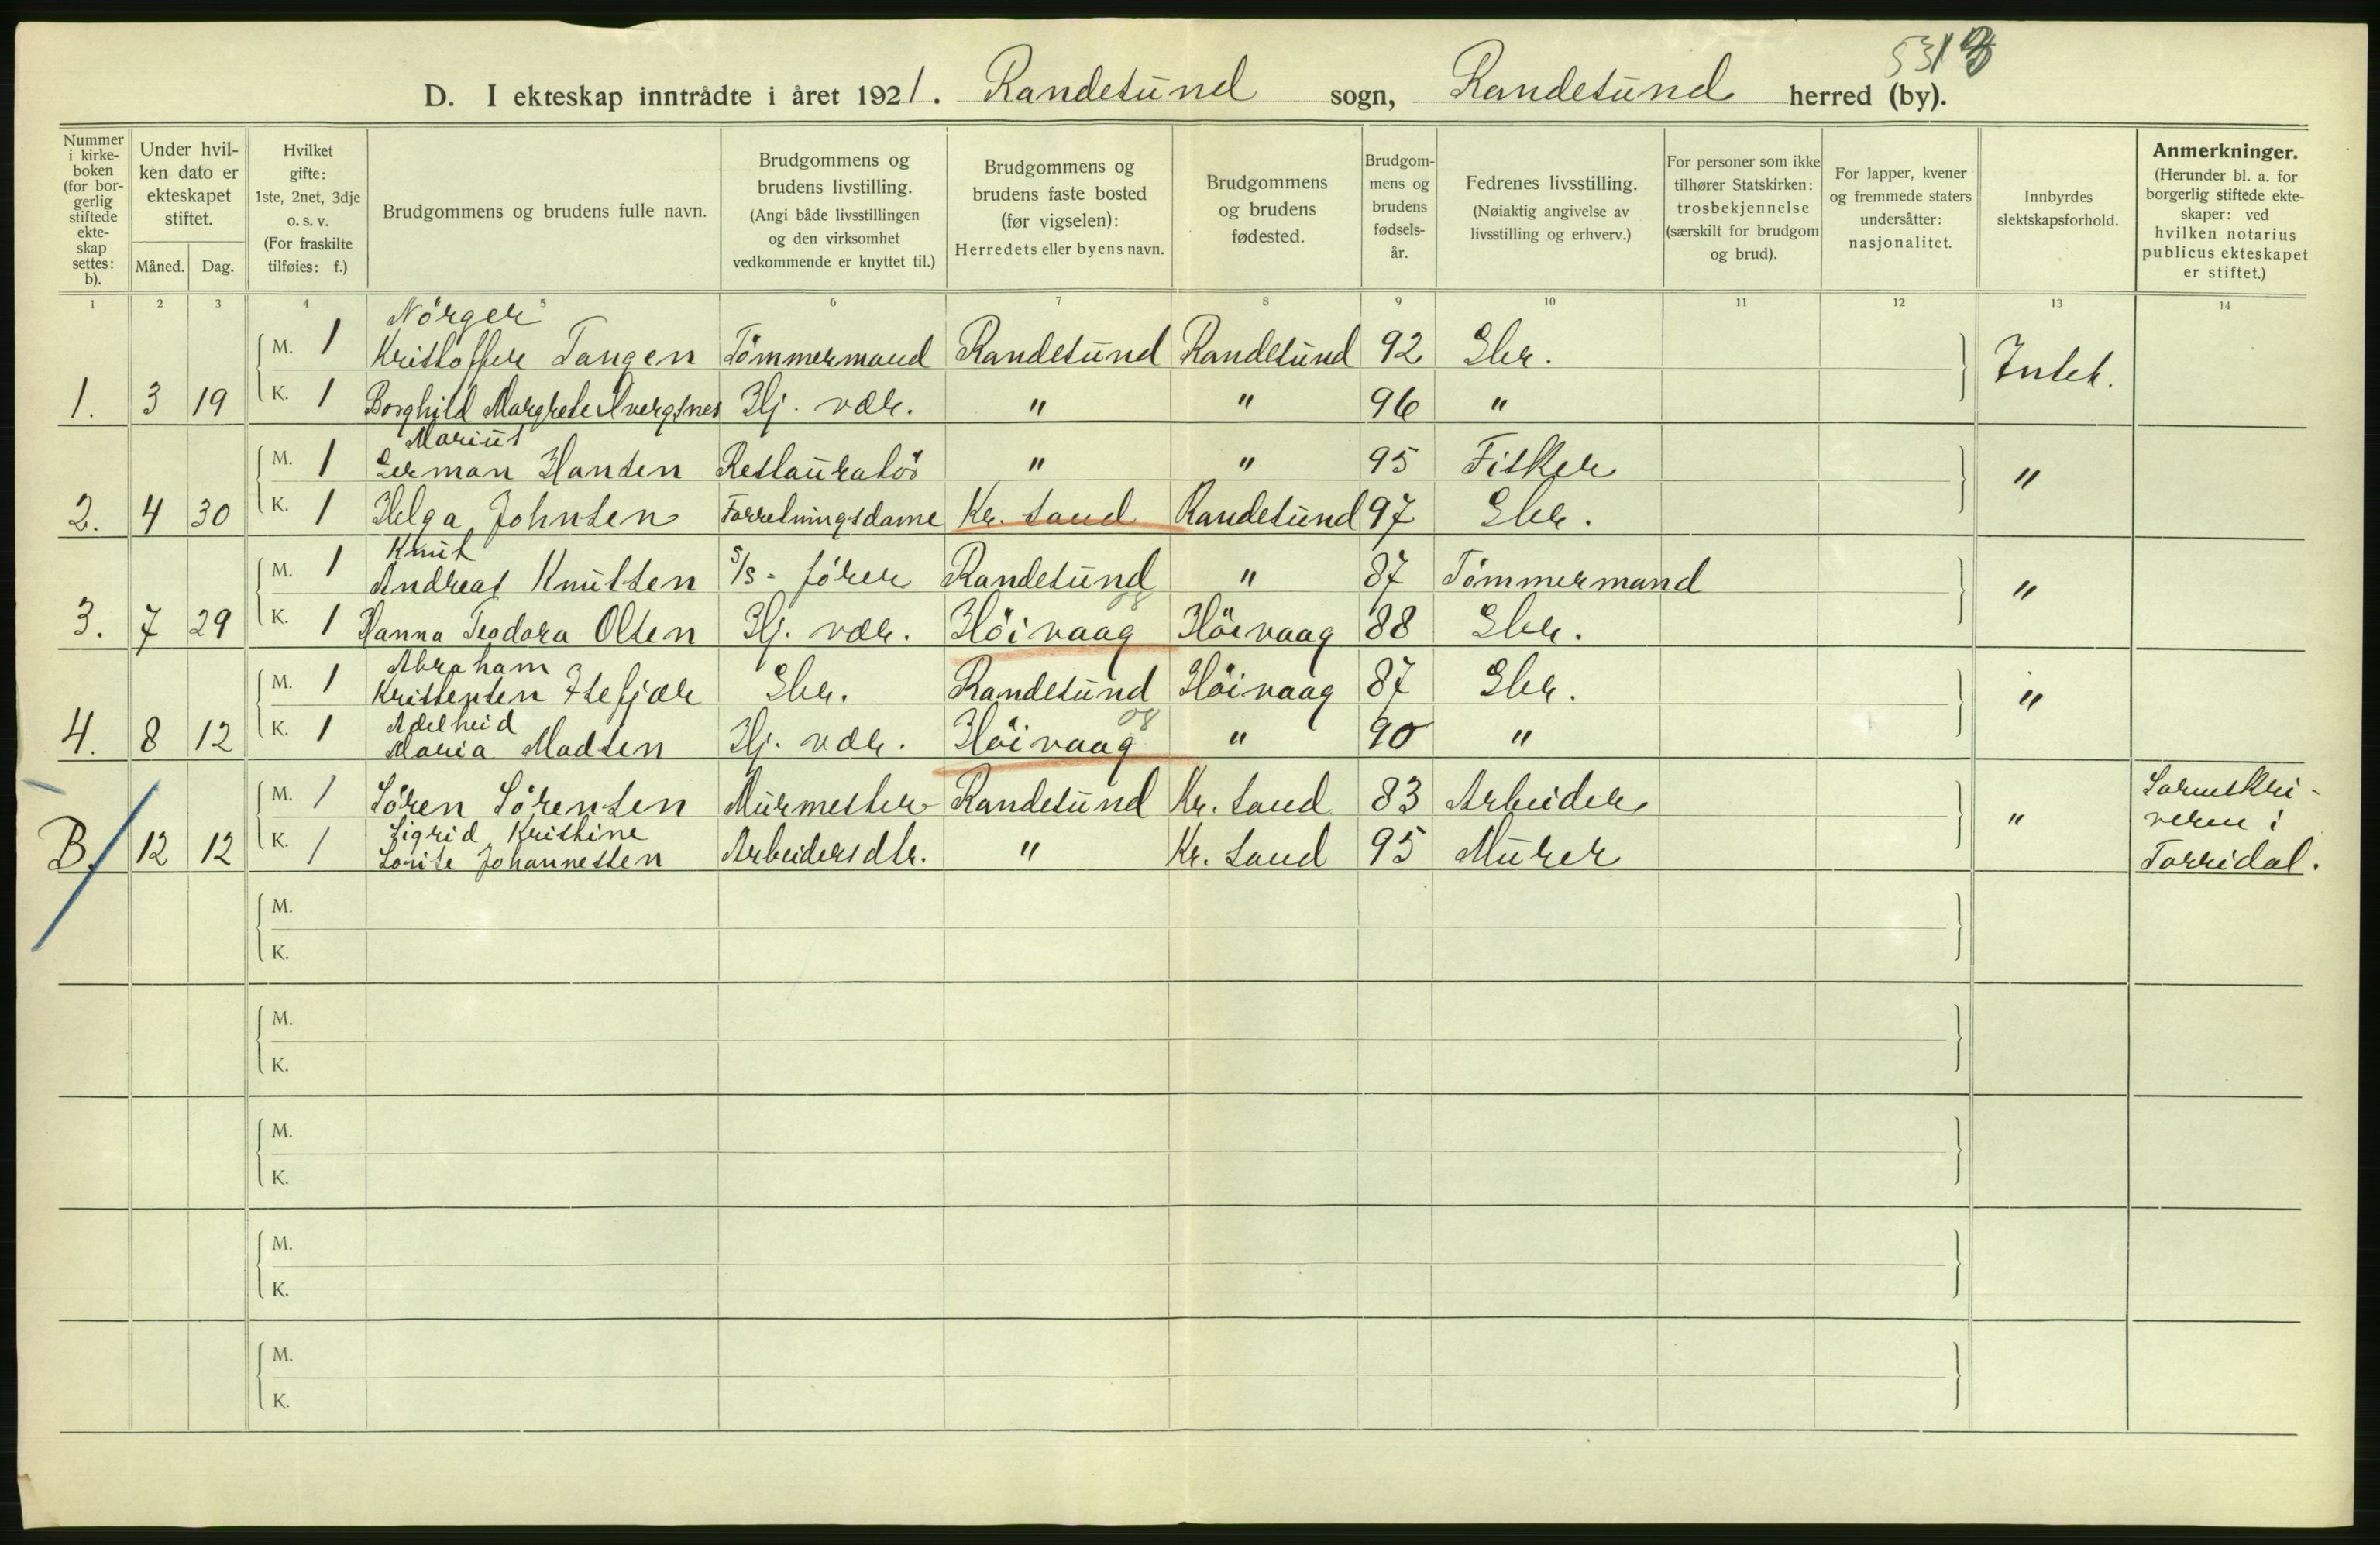 5313
D. I ekteskap inntrådte i året 1921. Randesund sogn, Randesund herred (by).
Nummer i kirke- boken (for bor- gerlig stiftede ekte- skap settes: b).
Under hvil- ken dato er ekteskapet stiftet.
Måned. Dag.
Hvilket gifte: 1ste, 2net, 3dje o. s. v. (For fraskilte tilføies: f.)
Brudgommens og brudens fulle navn.
Brudgommens og brudens livstilling. (Angi både livsstillingen og den virksomhet vedkommende er knyttet til.)
Brudgommens og brudens faste bosted (før vigselen): Herredets eller byens navn.
Brudgommens og brudens fødested.
Brudgom- mens og brudens fødsels- år.
Fedrenes livsstilling. (Nøiaktig angivelse av livsstilling og erhverv.)
For personer som ikke tilhører Statskirken: trosbekjennelse (særskilt for brudgom og brud).
For lapper, kvener og fremmede staters undersåtter: nasjonalitet.
Innbyrdes slektskapsforhold.
Anmerkninger. (Herunder bl. a. for borgerlig stiftede ekte- skaper: ved hvilken notarius publicus ekteskapet er stiftet.)
1 2 3 4 5 6 7 8 9 10 11 12 13 14
Nörger
M. 1 Kristoffer Tangen Tömmermand Randesund Randesund 92 Gbr. Intet.
1. 3 19 K. 1 Borghild Margrete Dvergsnes Hj. vær. " " 96 "
Marius
M. 1 German Hansen Restauratör " " 95 Fisker "
2. 4 30 K. 1 Helga Johnsen Forretningsdame Kr. sand Randesund 97 Gbr.
Knut
M. 1 Andreas Knutsen S/S - förer Randesund " 87 Tömmermand "
08
3. 7 29 K. 1 Hanna Teodora Olsen Hj. vær. Höivaag Höivaag 88 Gbr.
Abraham
M. 1 Kristensen Stefjær Gbr. Randesund Höivaag 87 Gbr. "
Adelheid 08
4. 8 12 K. 1 Maria Madsen Hj. vær. Höivaag " 90 "
M. 1 Sören Sörensen Murmester Randesund Kr. sand 83 Arbeider " Sorenskri-
veren i
Sigrid Kristine
B. 12 12 K. 1 Lovise Johannessen Arbeidersdtr. " Kr. sand 95 Murer Torridal.
M.
K.
M.
K.
M.
K.
M.
K.
M.
K.